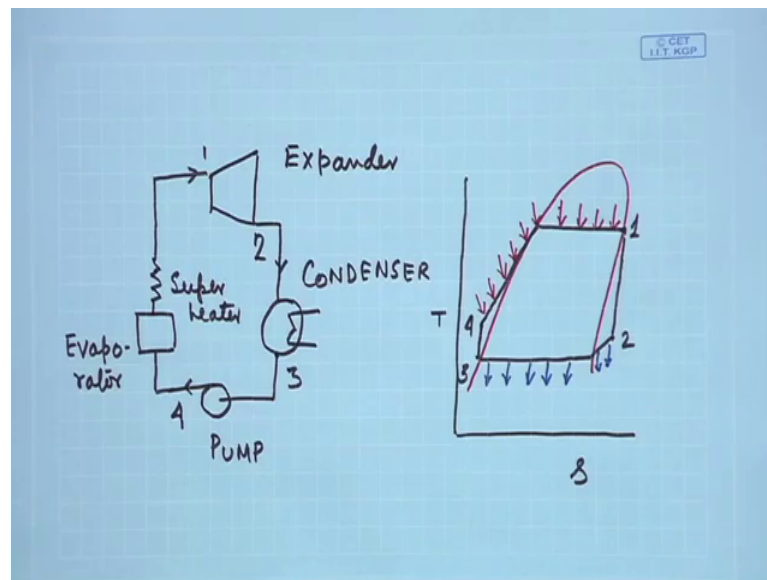 © CET
I.I.T. KGP
1
Expander
2
CONDENSER
Super
heater
Evapo-
rator
3
4
PUMP
T
1
2
3
4
S